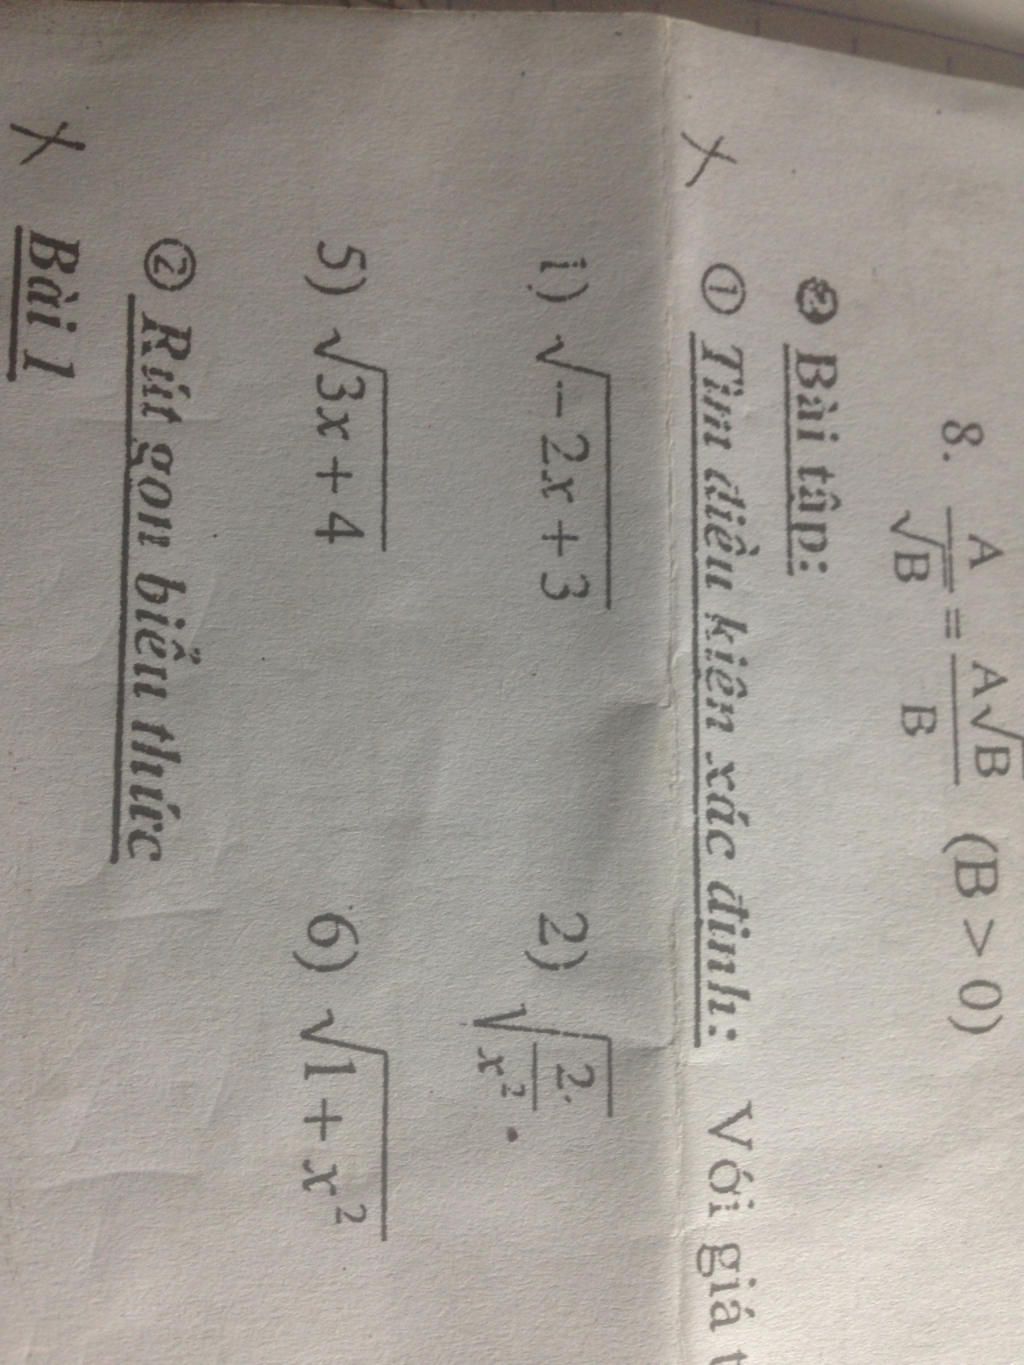 8. A/√B = A√B/B (B > 0)
❷ Bài tập:
① Tìm điều kiện xác định: Với giá
1) √(-2x + 3) 2) √(2/x²)
5) √(3x + 4) 6) √(1 + x²)
② Rút gọn biểu thức
Bài 1